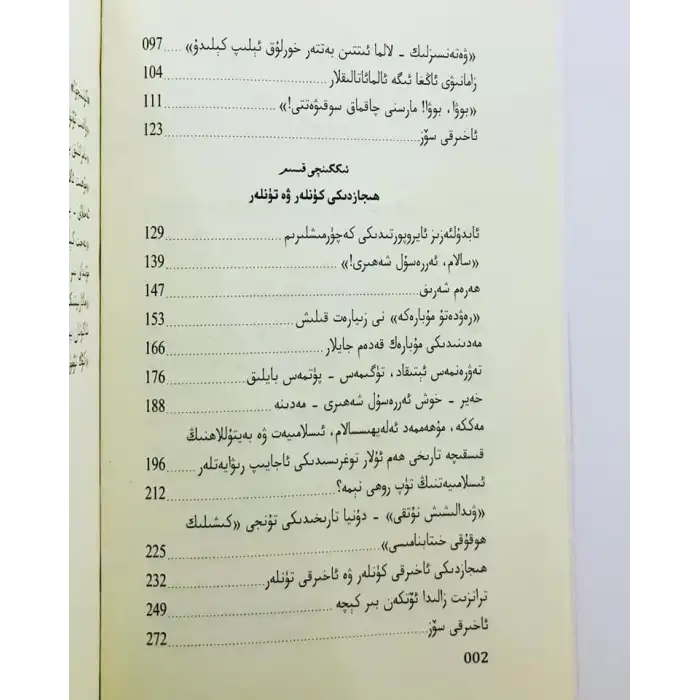 «ۋەتەنسىزلىك - لالما ئىتتىن بەتتەر خورلۇق ئېلىپ كېلىدۇ» 097
زامانىۋى ئاڭغا ئىگە ئالمائاتالىقلار 104
«بوۋا، بوۋا! مارسنى چاقماق سوقىۋەتتى!» 111
ئاخىرقى سۆز 123
ئىككىنچى قىسىم
ھىجازدىكى كۈنلەر ۋە تۈنلەر
ئابدۇلئەزىز ئايروپورتىدىكى كەچۈرمىشلىرىم 129
«سالام، ئەررەسۇل شەھىرى!» 139
ھەرەم شەرىق 147
«رەۋدەتۇ مۇبارەكە» نى زىيارەت قىلىش 153
مەدىنىدىكى مۇبارەك قەدەم جايلار 166
تەۋرەنمەس ئېتىقاد، تۈگىمەس - پۈتمەس بايلىق 176
خەير - خوش ئەررەسۇل شەھىرى - مەدىنە 188
مەككە، مۇھەممەد ئەلەيھىسسالام، ئىسلامىيەت ۋە بەيتۇللاھنىڭ
قىسقىچە تارىخى ھەم ئۇلار توغرىسىدىكى ئاجايىپ رىۋايەتلەر 196
ئىسلامىيەتنىڭ تۈپ روھى نېمە؟ 212
«ۋىدالىشىش نۇتقى» - دۇنيا تارىخىدىكى تۇنجى «كىشىلىك
ھوقۇقى خىتابنامىسى» 225
ھىجازدىكى ئاخىرقى كۈنلەر ۋە ئاخىرقى تۈنلەر 232
ترانزىت زالىدا ئۆتكەن بىر كېچە 249
ئاخىرقى سۆز 272
002